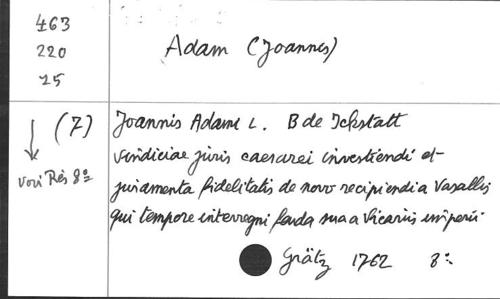 463
220
25
Adam (Joannes)
(7)
voir Rés 8º
Joannis Adami L. B de Ickstatt
vindiciae juris caesarei investiendi et
juramenta fidelitatis de novo recipiendi a vasallis
qui tempore interregni feuda sua a vicariis imperii
Grätz 1762 8º